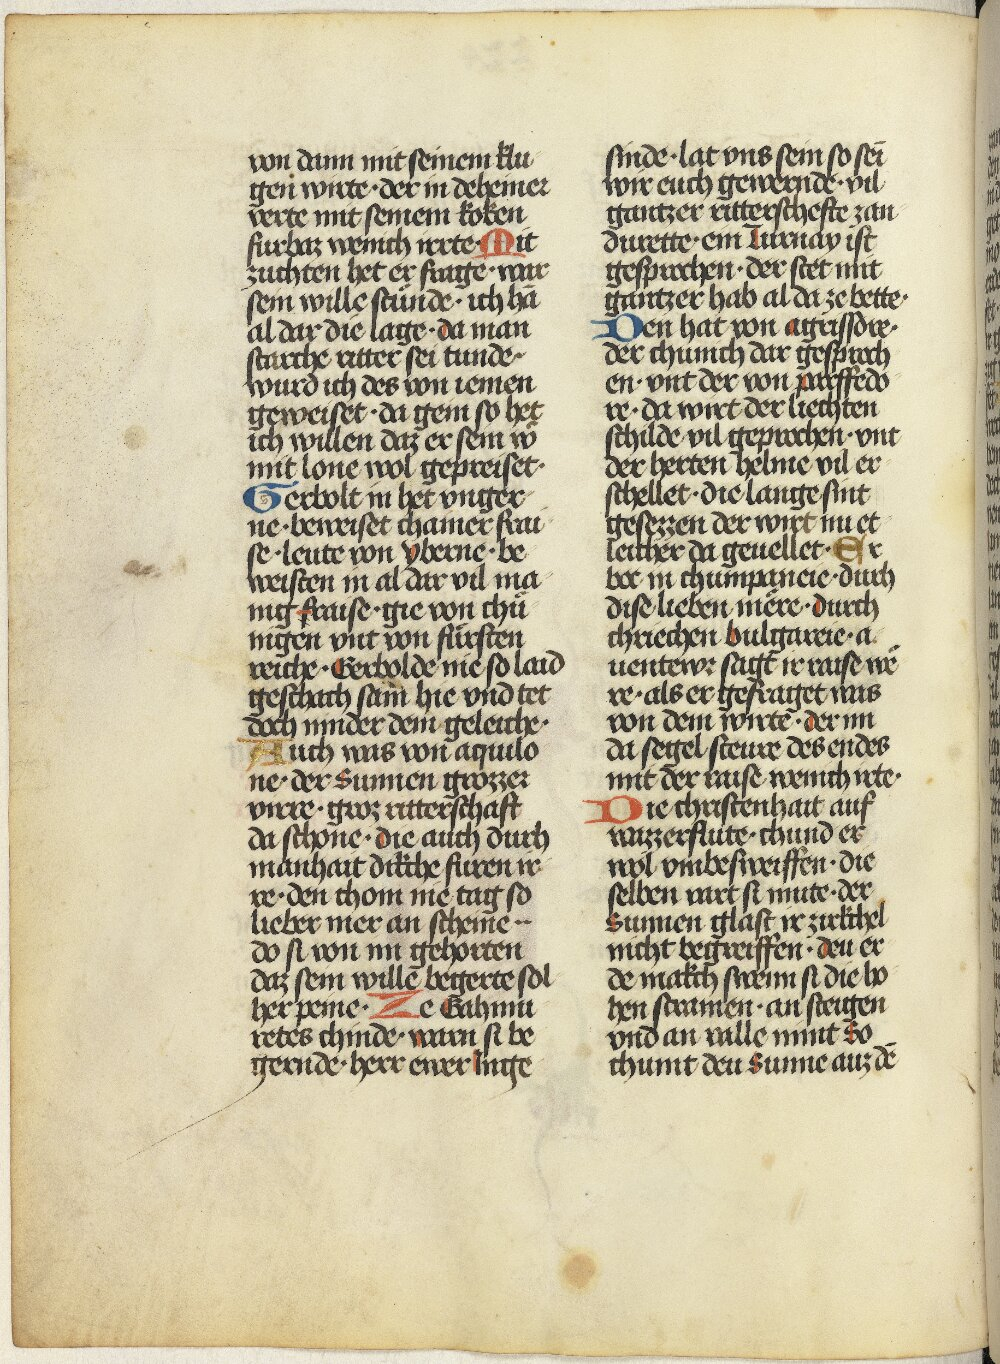 von dann mit seinem klu
gen wirte · der in deheiner
verte mit seinem koken
furbaz wenich irrte · Mit
zuchten het er frage · war
sein wille stünde · ich hā
al dar die lage · da man
starche ritter sei tunde ·
wurd ich des von iemen
geweiset · da gein so het
ich willen daz er sein w̄
mit lone wol gepreiset ·
Gerbolt in het vnger
ne · beweiset chainer frai
se · leute von yberne · be
weisten in al dar vil ma
nig fraise · gie von chü
nigen vnt von fürsten
reiche · Gerbolde nie so laid
geschach sam hie vnd tet
doch ninder dem geleiche ·
Auch was von aquilo
ne · der Sunnen grozzer
virre · groz ritterschaft
da schone · die auch durch
manhait dikche furen ir
re · den chom nie tag so
lieber mer an scheine ··
do si von im gehorten
daz sein wille begerte sol
her peine · Ze Gahmu
retes chinde · warn si be
gernde · herr ewer Inge
sinde · lat vns sein so sei
wir euch gewernde · vil
gantzer ritterschefte zan
durette · ein Turnay ist
gesprochen · der stet mit
gantzer hab al da ze bette ·
Den hat von agrissdre ·
der chunich dar gesproch
en · vnt der von parffedo
re · da wirt der liechten
schilde vil geprochen · vnt
der herten helme vil er
schellet · die lange sint
gesezzen der wirt nu et
leicher da geuellet · Er
bot in chumpaneie · durch
dise lieben mere · durch
chriechen bulgareie · a
uentewr sagt ir raise we
re · als er gefraget was
von dem wirte · der im
da segel steure des endes
mit der raise wenich irte ·
Die christenhait auf
wazzerflute · chund er
wol vmbesweiffen · die
selben vart si mute · der
Sunnen glast ir zirkchel
nicht begreiffen · deu er
de makch swenn si die ho
hen stramen · an steigen
vnd an valle nimt So
chumt deu Sunne auz dē